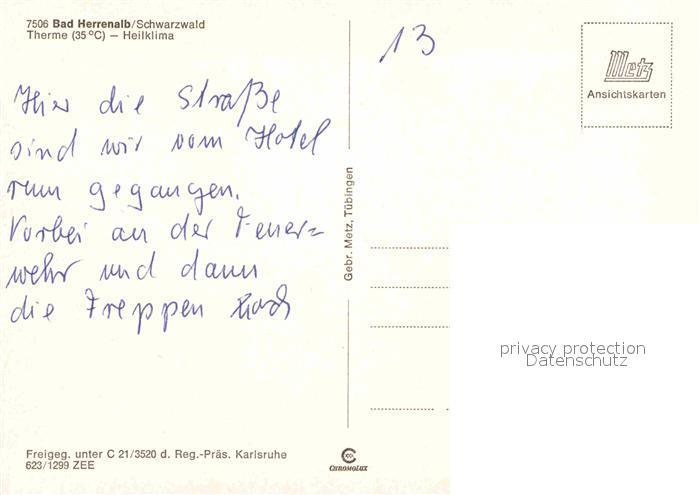 7506 Bad Herrenalb/Schwarzwald
Therme (35 °C) — Heilklima
13
Metz
Ansichtskarten
Hier die Straße
sind wir vom Hotel
rum gegangen.
Vorbei an der Feuer=
wehr und dann
die Treppen hoch
Gebr. Metz, Tübingen
privacy protection
Datenschutz
Freigeg. unter C 21/3520 d. Reg.-Präs. Karlsruhe
623/1299 ZEE
CHROMOLUX